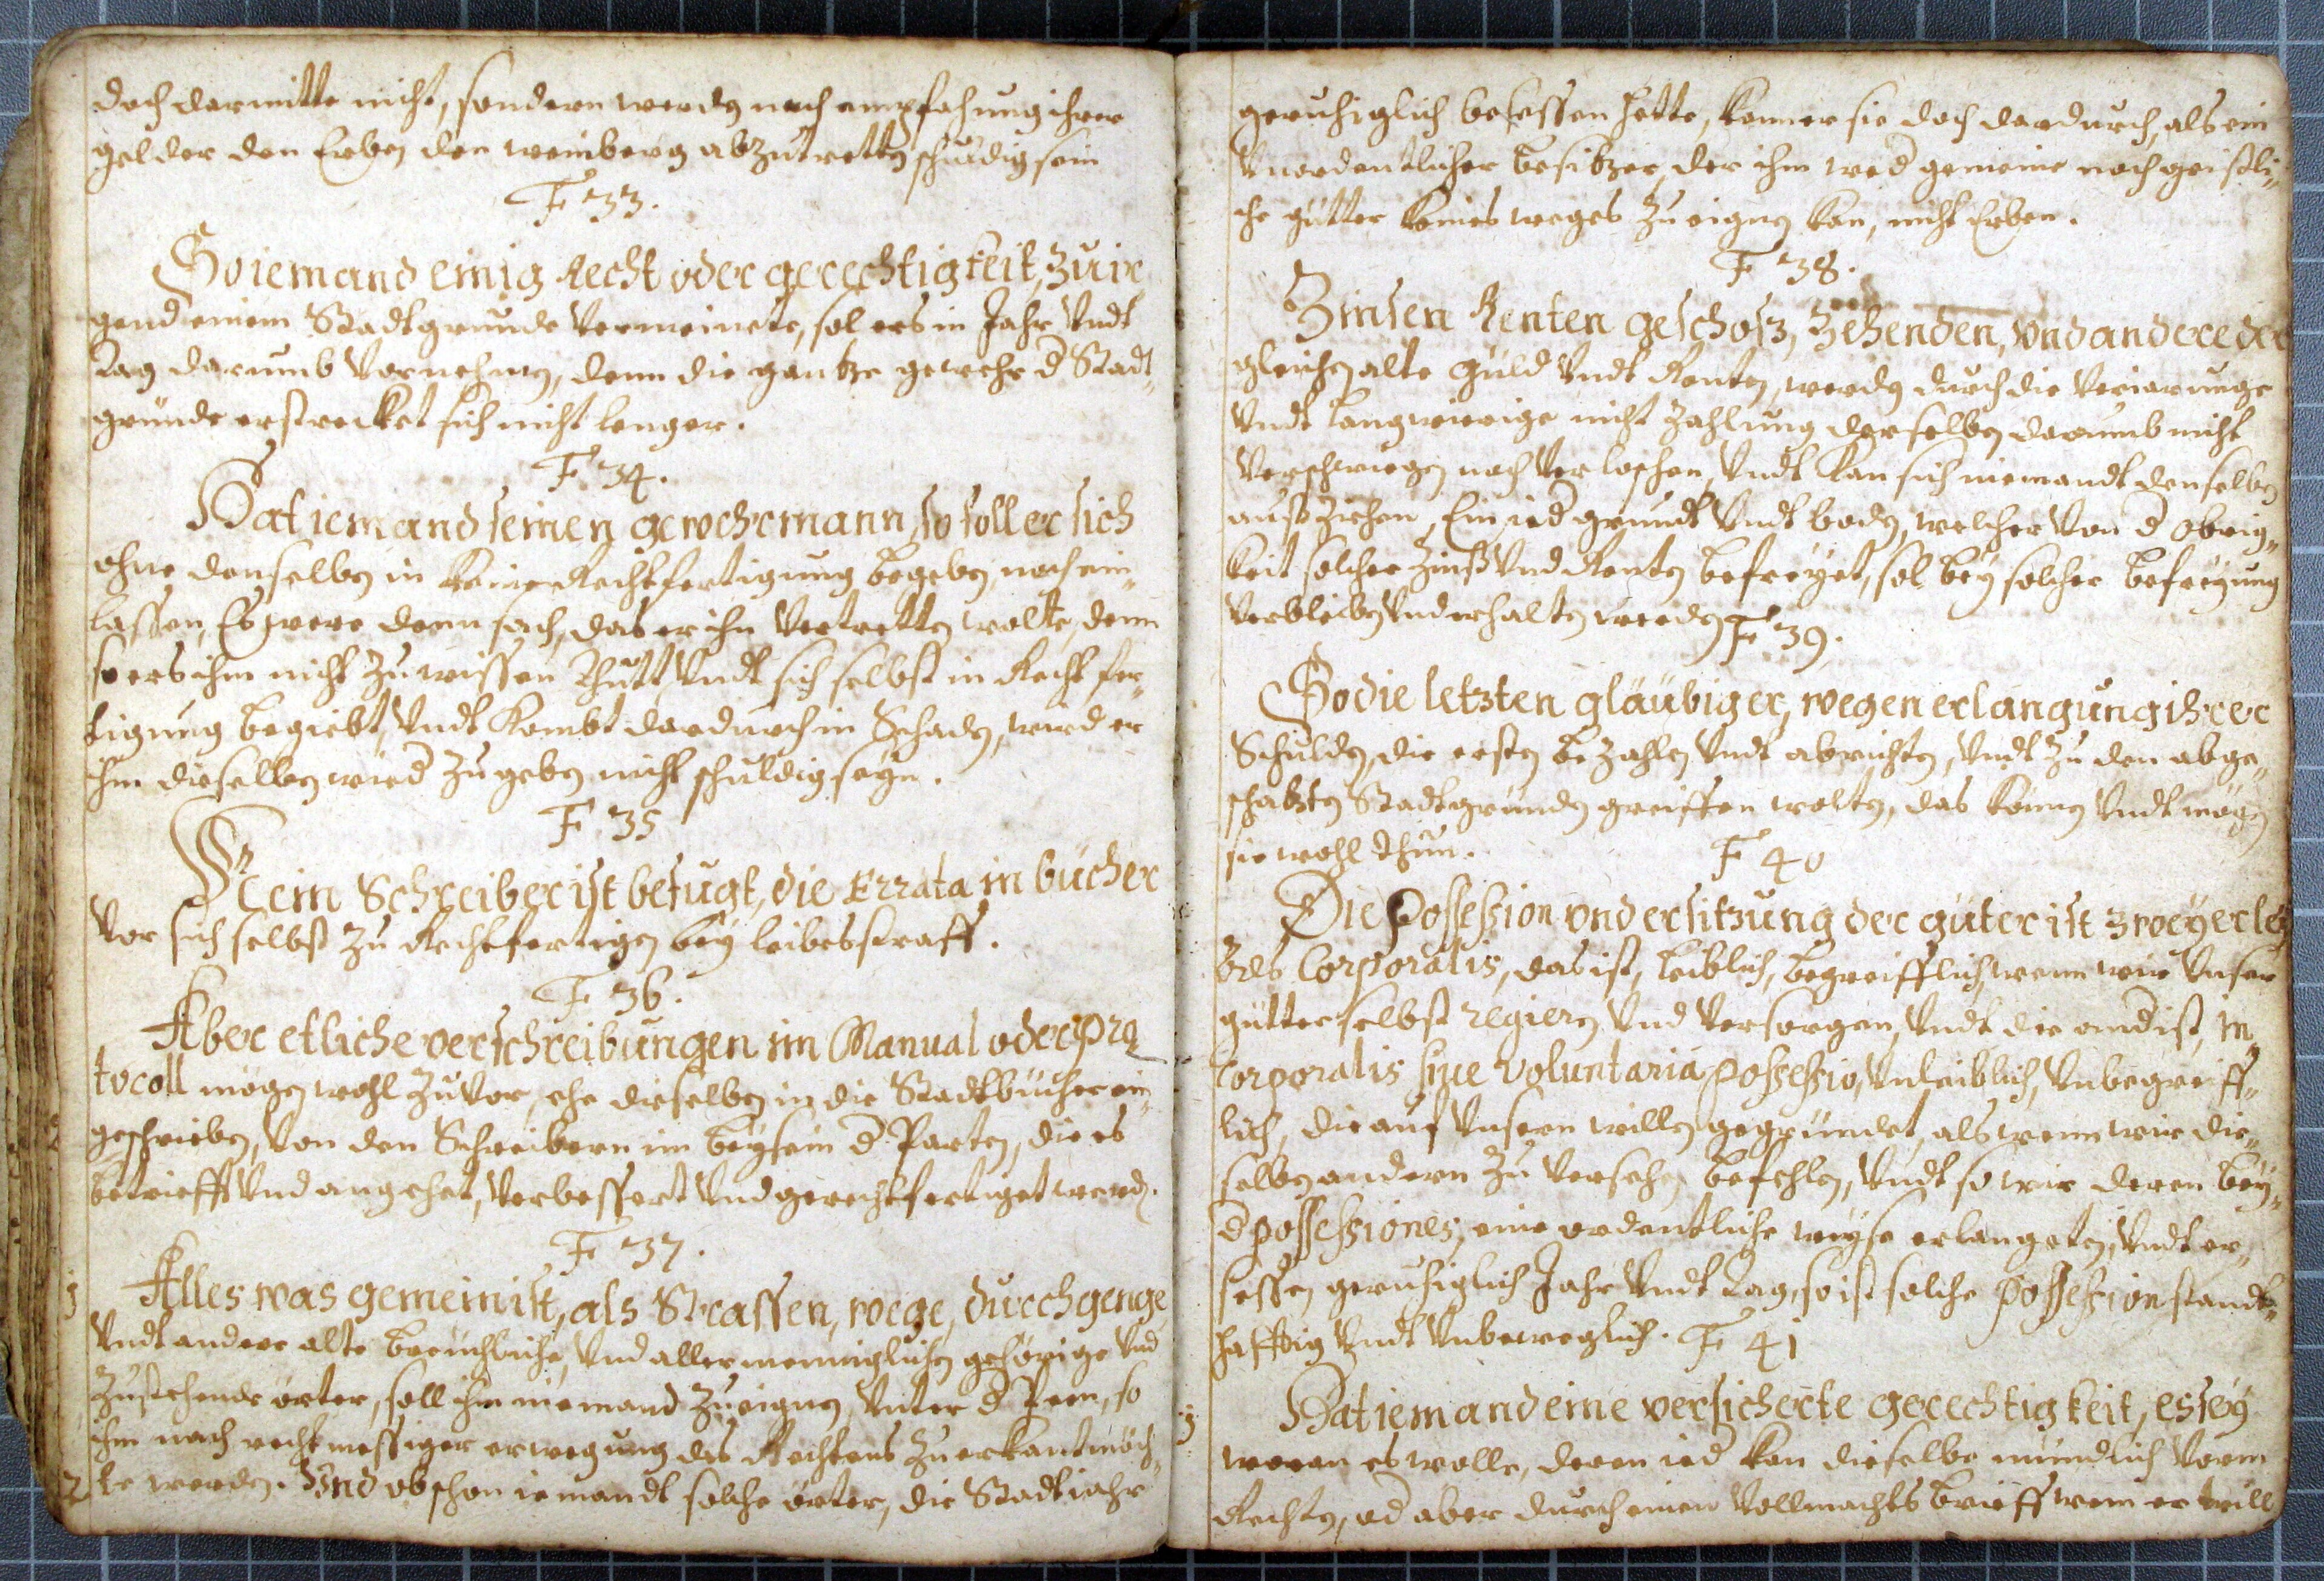 doch darmitte nicht, sondern werdn nach empfahung ihrer
gelder den Erben den weinberg abzutrettn schuldig sein
F 33.
So iemand einig Recht oder gerechtigkeit, zu ir
gend einem Stadtgrunde vermeinete, sol ers in Jahr undt
tag darumb vornehmn, denn die gantze gewehr d Stadt„
gründe erstrecket sich nicht lenger.
F 34.
Hat iemand seinen gewehrmann, so soll er sich
ohne denselbn in keine Rechtfertigung begebn, noch ein„
lassen, Es were denn sach, das er ihn vertrettn wolte, denn
so ers ihm nicht zu wissen thutt, undt sich selbst in Recht fer„
tigung begiebt, undt kombt dardurch in Schadn, wird er
ihm dieselben wied zu gebn nicht schuldig seyn.
F 35
Kein Schreiber ist befugt, die Errata in bücher
vor sich selbst zu Rechtfertign bey leibesstraff.
F 36.
Aber etliche verschreibungen im Manual oder pro
tocoll mögn wohl zuvor, ehe dieselbn in die Stadtbücher ein„
geschriebn, von den Schreibern im beysein d Partn, die es
betriefft und angehet, verbessert und gerechtfertiget werdn.
F 37.
1 Alles was gemein ist, als Strassen, wege, durchgenge
undt andere alte breuchliche, und allermenniglichn gehörige und
zustehende örter, soll ihm niemand zueignn, unter d Peen, so
ihm nach rechtmessiger erwegung des Rechtens zu erkant möch„
2 te werden. Und ob schon iemandt solche örter, die Stadt iahr
geruhiglich besessen hette, kann er sie doch dardurch, als ein
unordentlicher besitzer, der ihm wed gemeine noch geistli„
che gütter keines weges zu eignn kan, nicht Erben.
F 38.
Zinsen Renten geschosz, Zehenden, und andere der
gleichn alte güld undt Rentn, werdn durch die veriarunge
undt langwierige nicht zahlung derselbn darumb nicht
verschwiegn noch verloschen, undt kan sich niemandt denselbn
ausziehen, Ein ied grundt undt bodn, welcher von d obrig„
keit solcher zinß und Rentn befreyet, sol bey solcher befreyung
verbleibn und erhaltn werdn F 39.
So die letzten gläubiger, wegen erlangung ihrer
Schuldn, die erstn bezahln undt abrichtn, undt zu den abge„
schatztn Stadtgrundn greiffen woltn, das könnn undt mögn
sie wohl thun. F 40
Die Possession und ersitzung der güter ist zweyerley
des Corporalis, das ist, leiblich, begreifflich, wenn wir unser
gütter selbst regiern und versorgen, undt die and ist, in„
corporalis sive voluntaria possessio, unleiblich, unbegreiff„
lich, die auf unsern willn gegründet, als wenn wir die„
selbn andern zu versehn befehln, undt so wir deren bey„
d possessiones, eine ordentliche weyse erlangetn, undt er„
sessn geruhiglich Jahr undt tag, so ist solche possession standt„
hafftig undt unbeweglich. F 41
1 Hat iemand eine versicherte gerechtigkeit, es sey
woran es wolle, deren ied kan dieselbe mündlich vorm
Rechtn, od aber durch einen vollmachts brieff wem er will